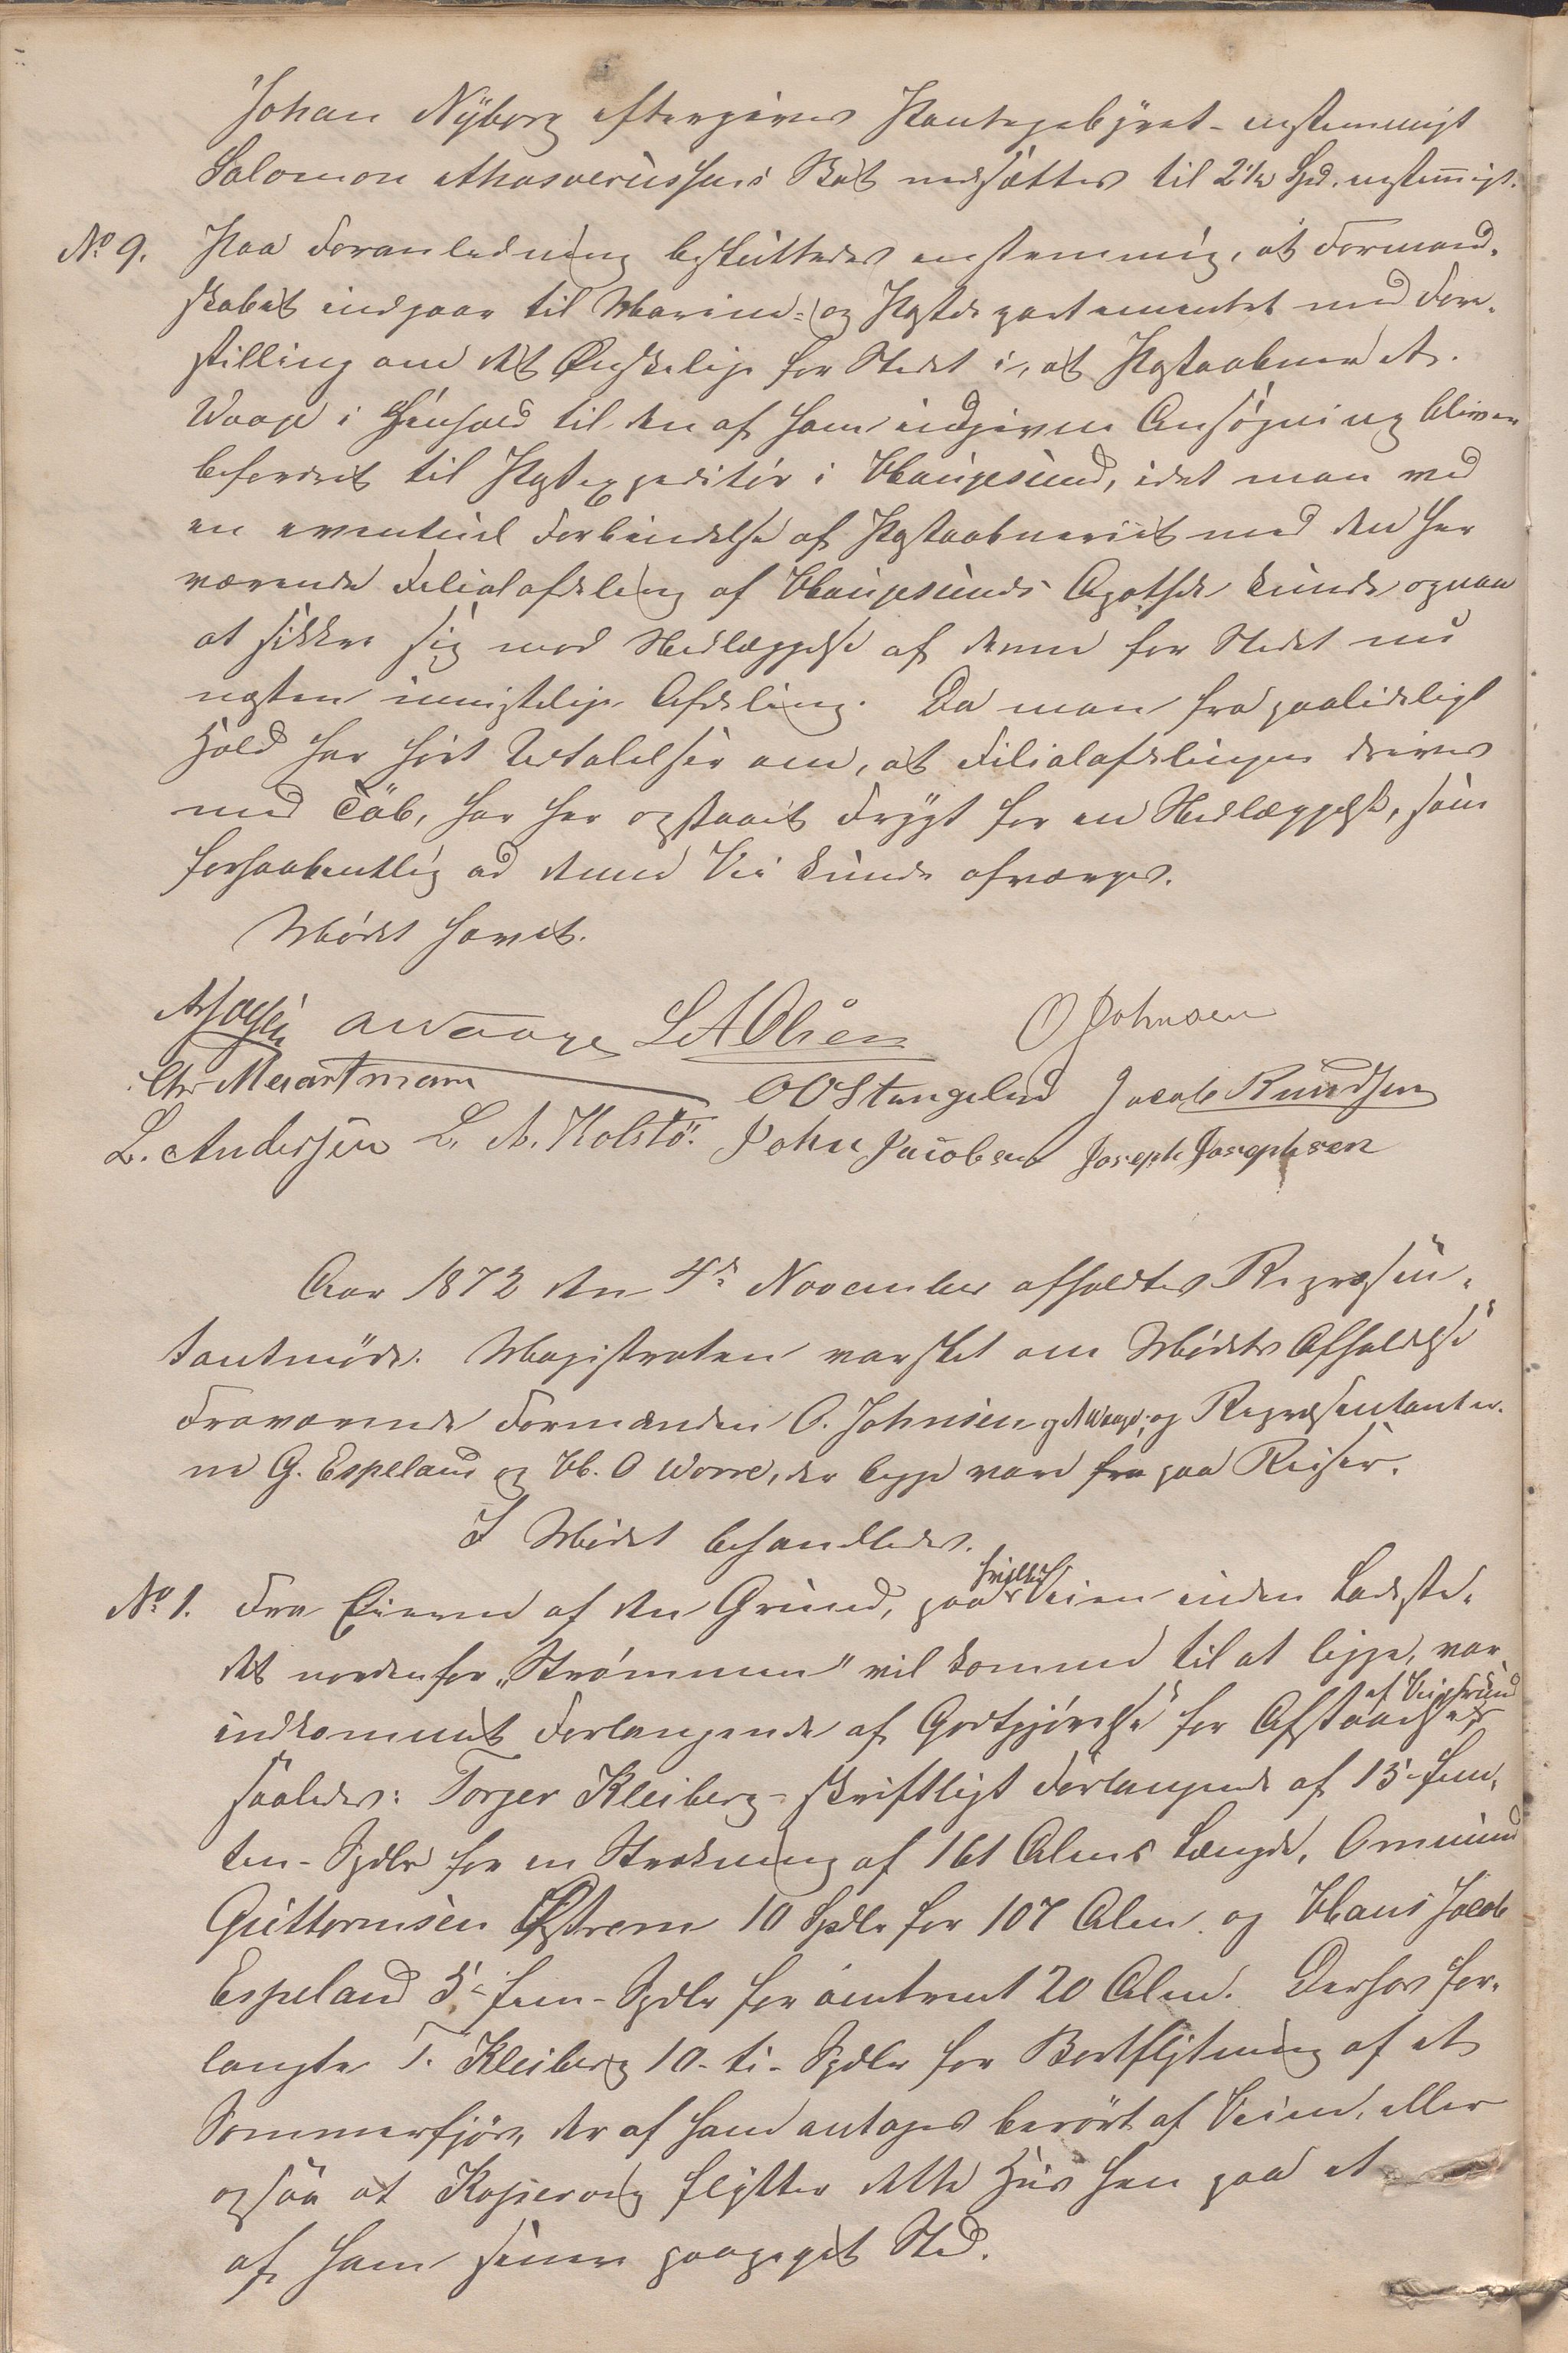 Johan Nyborg eftergives Pantegebyret - enstemmigt
Salomon Ahasverussens Skat nedsættes til 2 1/2 Spd. enstemmigt.
No 9. Paa Foranledning besluttedes enstemmig, at Formand-
skabet indgaar til Marine- og Postdepartementet med Fore-
stilling om det Ønskelige for Stedet i, at Postaabner A.
Waage i Henhold til den af ham indgivne Ansøgning bliver
befordret til Postexpeditør i Haugesund, idet man ved
en eventuel Forbindelse af Postaabneriet med den her
værende Filialafdeling af Haugesunds Apothek kunde opnaa
at sikkre sig mod Nedlæggelse af denne for Stedet nu
næsten umistelige Afdeling. Da man fra paalideligt
Hold har hørt Udtalelser om, at Filialafdelingen drives
med Tab, har her opstaaet Frygt for en Nedlæggelse, som
forhaabentlig ad denne Vei kunde afværges.
Mødet hævet.
AWaage LAOlsen O Johnsen
Chr Meiantmann OOStangeland Jacob Knudsen
L. Andersen L. A. Kolstø. John Jacobsen Joseph Josephsen
Aar 1872 den 4de November afholdtes Repræsen-
tantmøde. Magistraten varslet om Mødets Afholdelse
Fraværende Formænden O. Johnsen og A Waage, og Repræsentanter-
ne G. Espeland og H. O Worre, der begge vare fra paa Reiser.
I Mødet behandledes.
No 1. Fra Eierne af den Grund, paa hvilken Veien inden Ladeste-
det nordenfor „Strømmen" vil komme til at ligge, var
indkommet Forlangende af Godtgjørelse for Afstaaelse af Veigrund
saaledes: Torger Kleiberg - skriftligt Forlangende af 15 - fem-
ten - Spdlr for en Strækning af 161 Alens Længde, Ommund
Guttormsen Østrem 10 Spdlr for 107 Alen og Hans Jacob
Espeland 5 - fem - Spdlr for omtrent 20 Alen. Derhos for-
langte T. Kleiberg 10 - ti - Spdlr for Bortflytning af et
Sommerfjøs, der af ham antages berørt af Veien, eller
ogsaa at Kopervig flytter dette Hus hen paa et
af ham senere paapeget Sted.